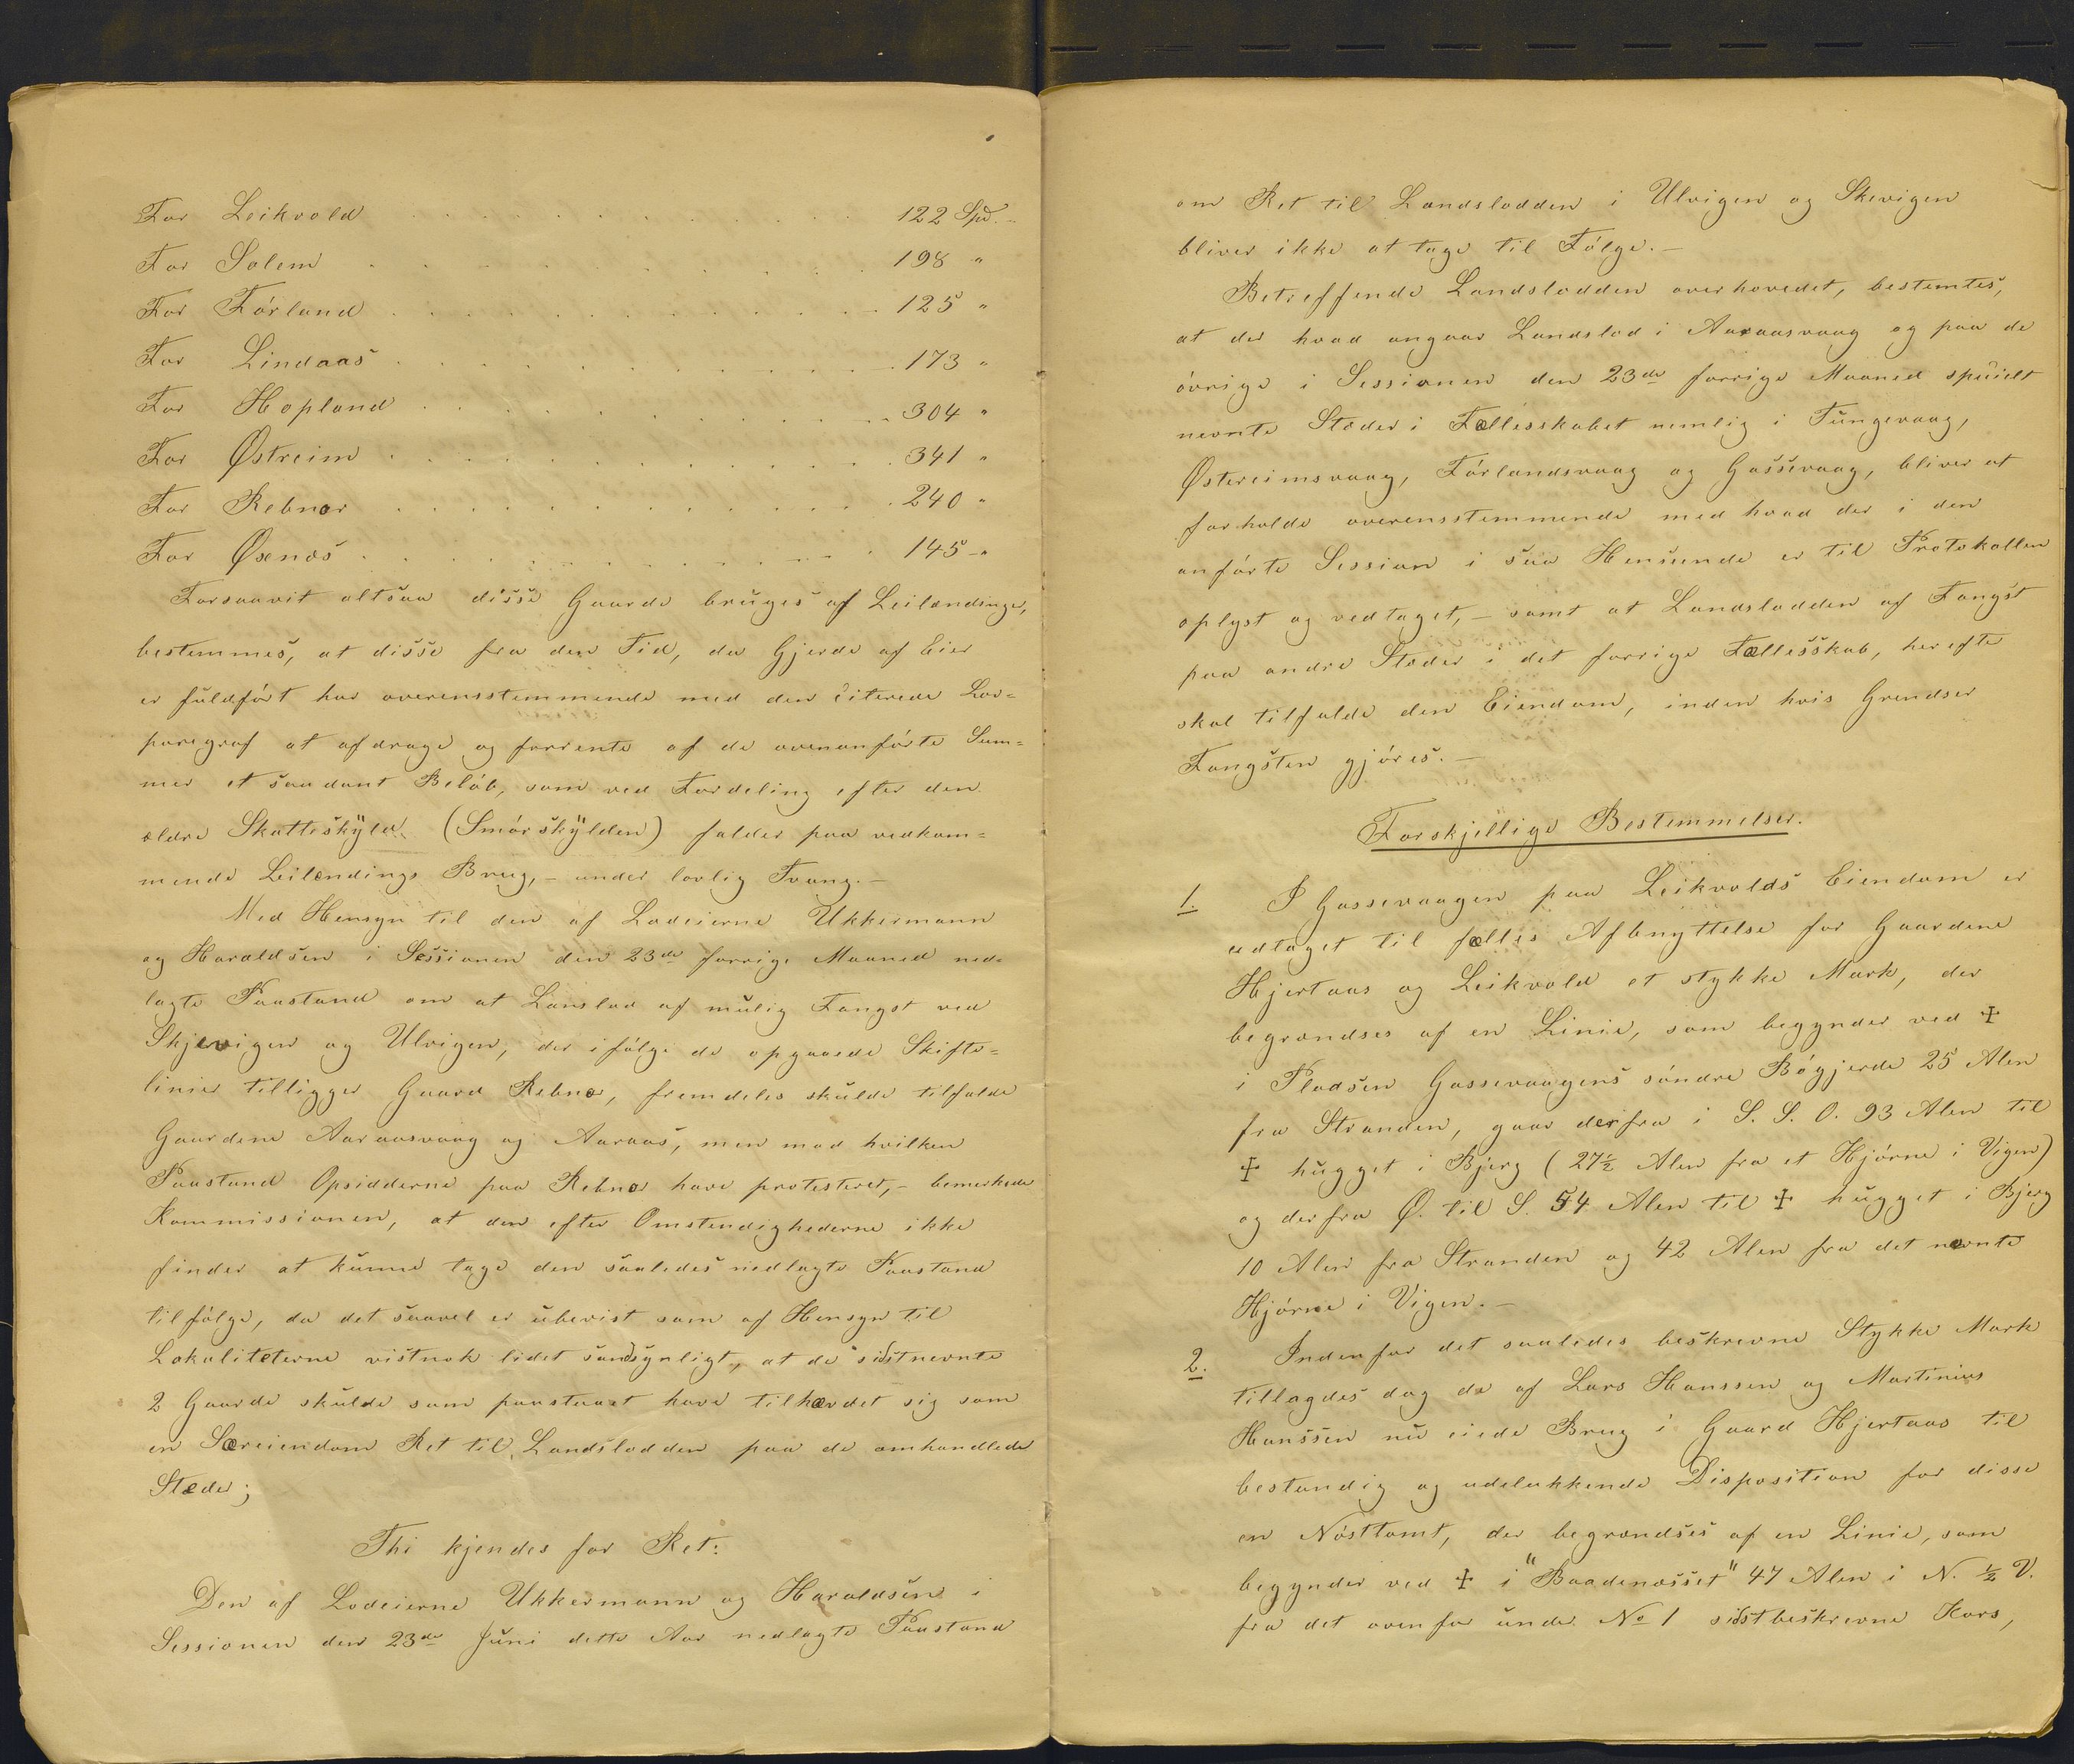 For Leikvold . . . . . . . . . . . . . 122 Spd. -
For Solem . . . . . . . . . . . . . 198 "
For Förland . . . . . . . . . . . . . 125 "
For Lindaas . . . . . . . . . . . . . 173 "
For Hopland . . . . . . . . . . . . . 304 "
For Østreim . . . . . . . . . . . . . 341 "
For Rebnor . . . . . . . . . . . . . 240 "
For Øxnæs . . . . . . . . . . . . . 145 - "
Forsaavit altsaa disse Gaarde bruges af Leilændinge,
bestemmes, at disse fra den Tid, da Gjerde af Eier
er fuldfört har overensstemmende med den citerede Lov=
paragraf at afdrage og forrente af de ovenanförte Sum=
mer et saadant Belöb, som ved Fordeling efter den
ældre Skatteskyld (Smörskylden) falder paa vedkom=
mende Leilændings Brug, - under lovlig Tvang. -
Med Hensyn til den af Lodeierne Ukkermann
og Haraldsen i Sessionen den 23de forrige Maaned ned=
lagte Paastand om at Lanslod af mulig Fangst ved
Skjevigen og Ulvigen, der ifölge de opgaaede Skifte=
linier tilligger Gaard Rebnor, fremdeles skulde tilfalde
Gaardene Aaraasvaag og Aaraas, men mod hvilken
Paastand Opsidderne paa Rebnor have protesteret, - bemerkede
Kommissionen, at den efter Omstendighederne ikke
finder at kunne tage den saaledes nedlagte Paastand
tilfölge, da det saavel er ubevist som af Hensyn til
Lokaliteterne vistnok lidet sandsynligt, at de sidstnevnte
2 Gaarde skulde som paastaaet have tilhævdet sig som
en Særeiendom Ret til Landslodden paa de omhandlede
Stæder;
Thi kjendes for Ret:
Den af Lodeierne Ukkermann og Haraldsen i
Sessionen den 23de Juni dette Aar nedlagte Paastand
om Ret til Landslodden i Ulvigen og Skevigen
bliver ikke at tage til Fölge. -
Betreffende Landslodden overhovedet, bestemtes,
at der hvad angaar Landslod i Aaraasvaag og paa de
övrige i Sessionen den 23de forrige Maaned specielt
nevnte Stæder i Fællesskabet nemlig i Tungevaag,
Østereimsvaag, Förlandsvaag og Gassevaag, bliver at
forholde overensstemmende med hvad der i den
anförte Session i saa Henseende er til Protokollen
oplyst og vedtaget, - samt at Landslodden af Fangst
paa andre Stæder i det forrige Fællesskab, herefter
skal tilfalde den Eiendom, inden hvis Grendser
Fangsten gjöres. -
Forskjellige Bestemmelser.
1. I Gassevaagen paa Leikvolds Eiendom er
udtaget til fælles Afbnyttelse for Gaardene
Hjertaas og Leikvold et stykke Mark, der
begrændses af en Linie, som begynder ved ‡
i Pladsen Gassevaagens söndre Bögjerde 25 Alen
fra Stranden, gaar derfra i S. S. O. 93 Alen til
‡ hugget i Bjerg (27½ Alen fra et Hjörne i Vigen)
og derfra Ø. til S. 54 Alen til ‡ hugget i Bjerg
10 Alen fra Stranden og 42 Alen fra det nevnte
Hjörne i Vigen. -
2. Indenfor det saaledes beskrevne Stykke Mark
tillagdes dog de af Lars Hanssen og Martinius
Hanssen nu eiede Brug i Gaard Hjertaas til
bestandig og udelukkende Disposition for disse
en Nösttomt, der begrændses af en Linie, som
begynder ved ‡ i "Baadenæsset" 47 Alen i N. ½ V.
fra det ovenfor under No 1 sidstbeskrevne Kors,